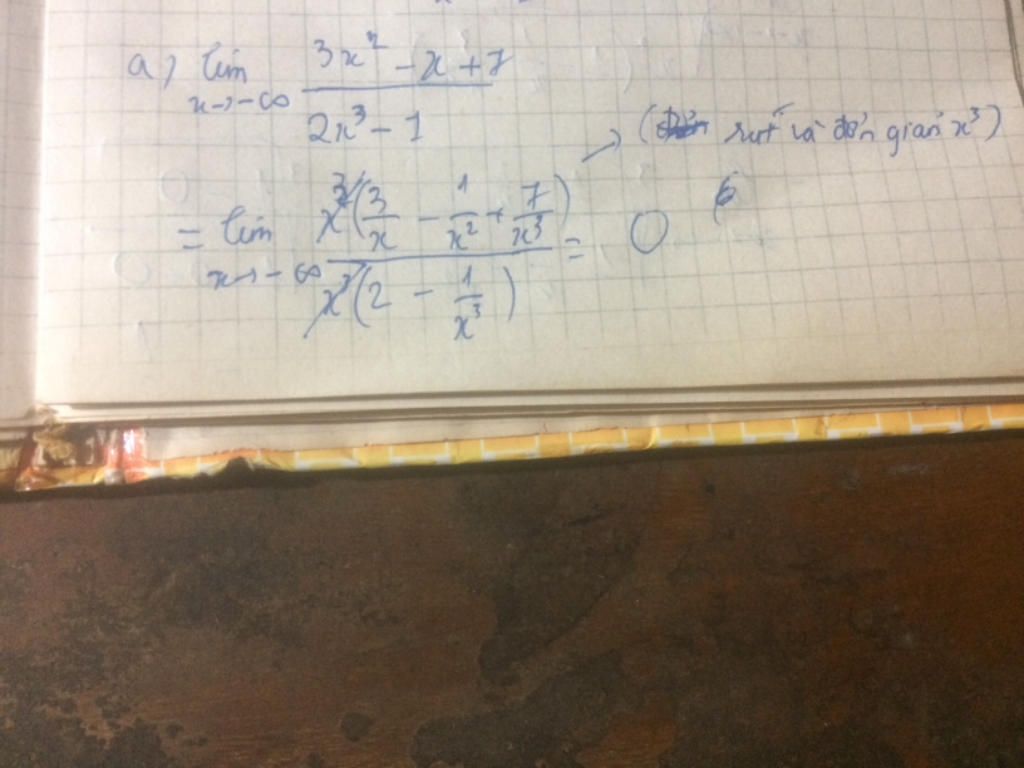 a) lim 3x² - x + 7
x→-∞ 2x³ - 1
→ (rút và đơn giản x³)
= lim x³(3/x - 1/x² + 7/x³) = 0
x→-∞ x³(2 - 1/x³)